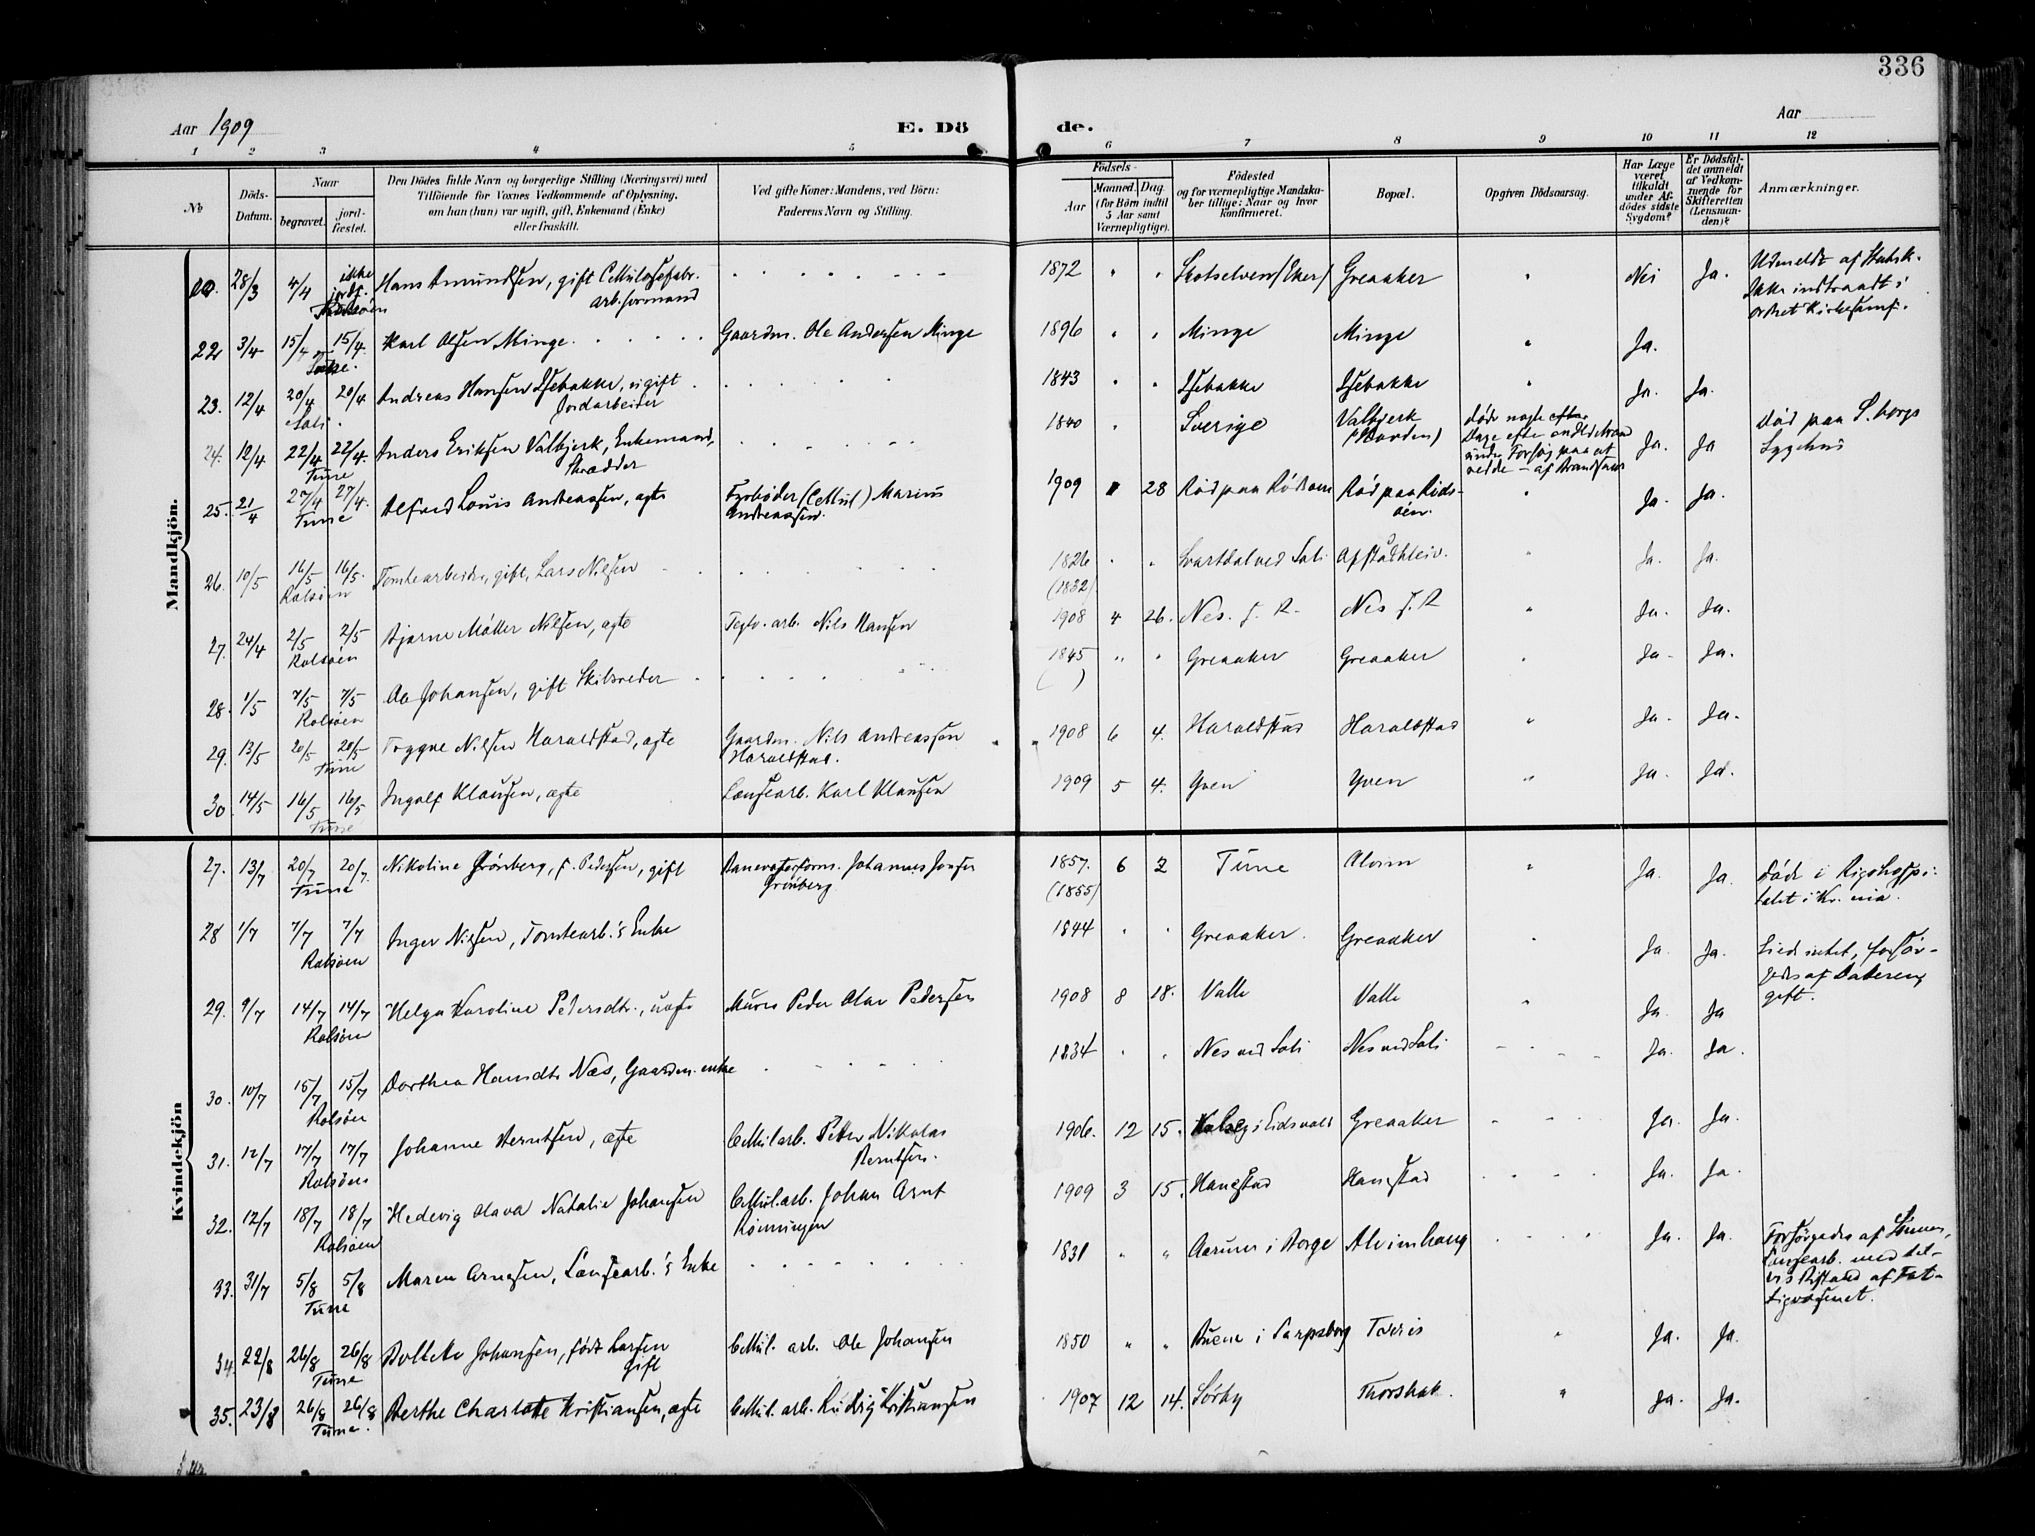 336
Aar 1909
E. Dö
de.
Aar
1 2 3 4 5 6 7 8 9 10 11 12
No
Döds-
Datum.
Naar
begravet.
jord-
fæstet.
Den Dödes fulde Navn og borgerlige Stilling (Næringsvei) med
Tilföiende for Voxnes Vedkommende af Oplysning,
om han (hun) var ugift, gift, Enkemand (Enke)
eller fraskilt.
Ved gifte Koner: Mandens, ved Börn:
Faderens Navn og Stilling.
Födsels-
Aar
Maaned. Dag.
(for Börn indtil
5 Aar samt
Værnepligtige).
Födested
og for værnepligtige Mandsku-
ber tillige: Naar og hvor
konfirmeret.
Bopæl.
Opgiven Dödsaarsag.
Har Læge
været
tilkaldt
under Af-
dödes sidste
Sygdom?
Er Dödsfal-
det anmeldt
af Vedkom-
mende for
Skifteretten
(Lensman-
den)?
Anmærkninger.
Mandkjön.
28/3 4/4 ikke jordf. Hans Amundsen, gift Cellulosefabr. arb. formand 1872 " " Skotselven (Eker) Greaaker " Nei Ja. Udmeldt af Statsk. Ikke indtraadt i andet Kirkesamf.
22 3/4 15/4 Tune. 15/4. Karl Olsen Minge. Gaardm. Ole Andersen Minge 1896 " " Minge Minge " Ja.
23. 12/4 20/4 Soli. 20/4 Andreas Hansen Isebakke, ugift Jordarbeider 1843 " " Isebakke Isebakke " Ja. Ja.
24. 12/4 22/4 Tune 22/4. Anders Eriksen Valbjerk, Enkemand, Skrædder 1840 " Sverige Valbjerk døde nogle Dage efter under Forsøg paa at redde Ja. Ja Død paa S.borgs Sygehus
25. 21/4 27/4 Tune 27/4. Alfred Louis Andreassen, ægte Fyrbøder (Cellul) Marius Andreassen. 1909 " 28 Rød paa Rødsøen Rød paa Rødsøen. " Ja. Ja.
26. 10/5 16/5 Rolsöen 16/5. Tomtearbeider, gift, Lars Nilsen 1826 (1832) " " Svartdal ved Soli. " Ja. Ja.
27. 24/4 2/5 Rolsöen 2/5 Bjarne Møller Nilsen, ægte Teglv. arb. Nils Hansen 1908 4 26. Nes. f. R. Nes f. R " Ja. Ja.
28. 1/5 7/5 Rolsöen 7/5 Ole Johansen, gift Skibsreder 1845 ( ) " " Greaaker Greaaker " Ja. Ja.
29. 13/5 20/5 Tune 20/5 Trygve Nilsen Haraldstad, ægte Gaardm. Nils Andreassen Haraldstad. 1908 6 4. Haraldstad Haraldstad " Ja. Ja.
30 14/5 16/5 Tune 16/5 Ingolf Klausen, ægte Lændsearb. Karl Klausen 1909 5 4. Yven Yven " Ja. Ja.
Kvindekjön
27. 13/7 20/7 Tune 20/7. Nikoline Grønberg, f. Pedersen, gift Banevogterform. Johannes Jonsen Grønberg 1857. (1855) 6 2 Tune Alvim " Ja. Ja. Døde i Rigshospitalet i Kr.nia.
28 1/7 7/7 Rolsöen 7/7 Inger Nilsen, Tomtearb.'s Enke 1844 " " Greaaker. Greaaker " Ja. Ja. Eied intet, forsørgedes af Datteren, gift.
29. 9/7 14/7 Rolsöen 14/7 Helga Karoline Pedersdtr., uægte Murer Peder Olav Pedersen 1908 8 18. Valle Valle " Ja. Ja
30. 10/7 15/7 Rolsöen 15/7 Dorthea Hansdtr. Næs, Gaardm. enke 1834 " " Nes ved Soli Nes ved Soli " Ja. Ja.
31. 12/7 17/7 Rolsöen 17/7 Johanne Berntsen, ægte Cellul.arb. Peter Nikolai Berntsen. 1906. 12 15. i Eidsvold Greaaker " Ja. Ja.
32. 12/7 18/7 Rolsöen 18/7 Hedevig Olava Natalie Johansen Cellul.arb. Johan Arnt Rønningen 1909 3 15. Hangstad Hangstad Ja. Ja.
33. 31/7 5/8 Tune 5/8 Maren Arnesen, Lændsearb.'s Enke 1831 " " i Borge Alvimhaug Ja. Ja. Forsørgedes af Sønnen, Lændsearb. med delvis Bistand af Fattigvæsenet.
34. 22/8 26/8 Tune 26/8 Bollette Johansen, født Larsen gift Cellul. arb. Ole Johansen 1850 " " i Sarpsborg Torris " Ja. Ja.
35. 23/8 26/8 Tune. 26/8 Berthe Charlotte Kristiansen, ægte Cellul. arb. Ludvig Kristiansen 1907 12 14. Sørby Thorsbak. " Ja. Ja.